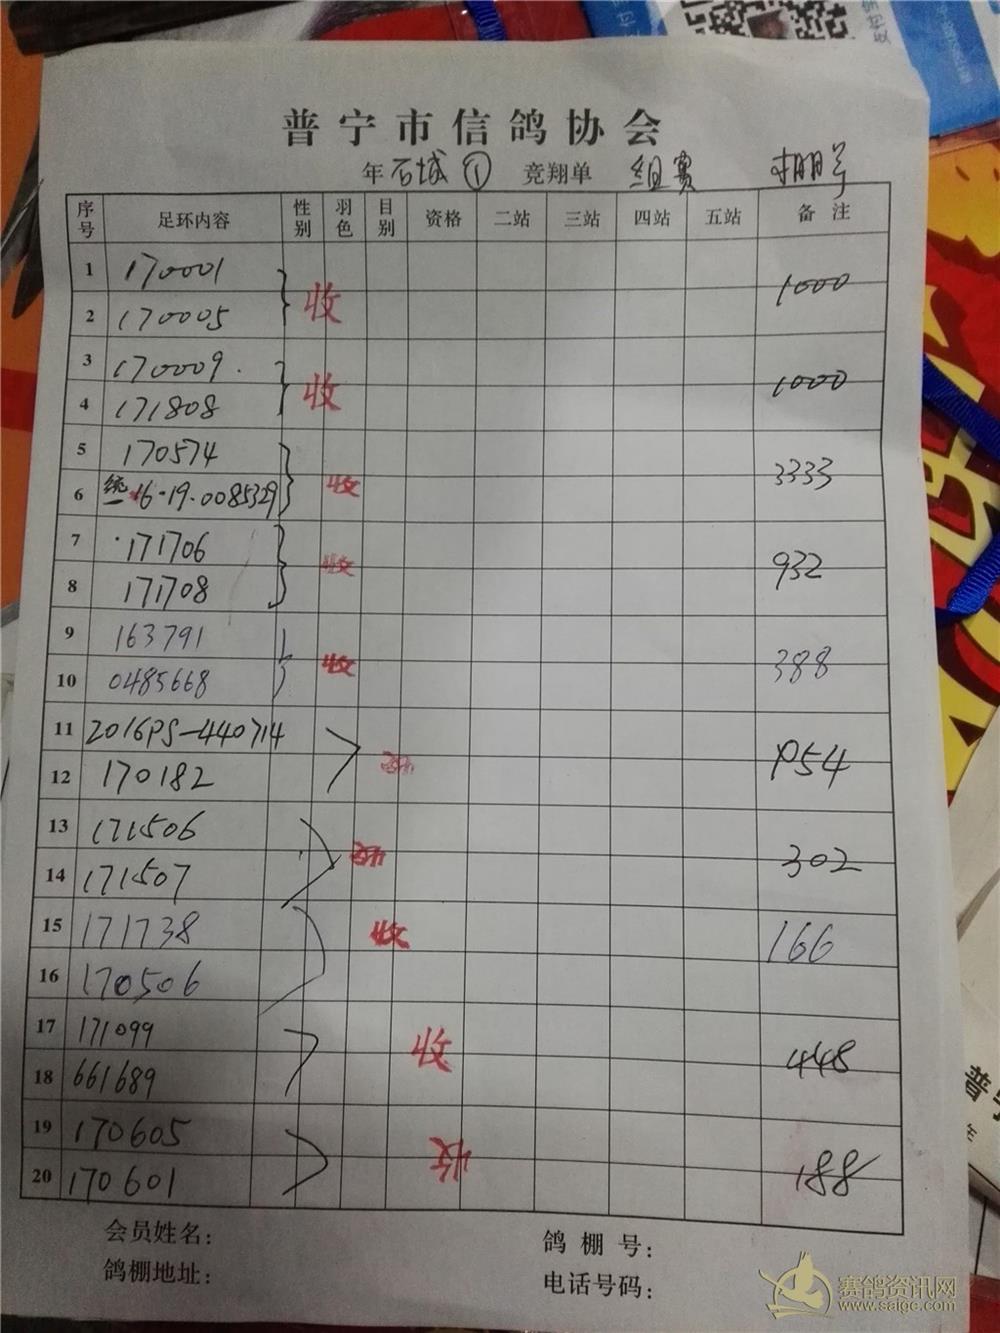 普宁市信鸽协会
年 石城 ① 竞翔单 组赛 棚号
序号 足环内容 性别 羽色 目别 资格 二站 三站 四站 五站 备 注
1 170001
收 1000
2 170005
3 170009.
收 1000
4 171808
5 170574
收 3333
6 统一 16·19·0085329
7 ·171706
收 932
8 171708
9 163791
收 388
10 0485668
11 2016PS-440714
收 P54
12 170182
13 171506
收 302
14 171507
15 171738 收 166
16 170506
17 171099
收 448
18 661689
19 170605
收 188
20 170601
会员姓名: 鸽 棚 号:
鸽棚地址: 电话号码:
赛鸽资讯网
www.saigc.com
普宁